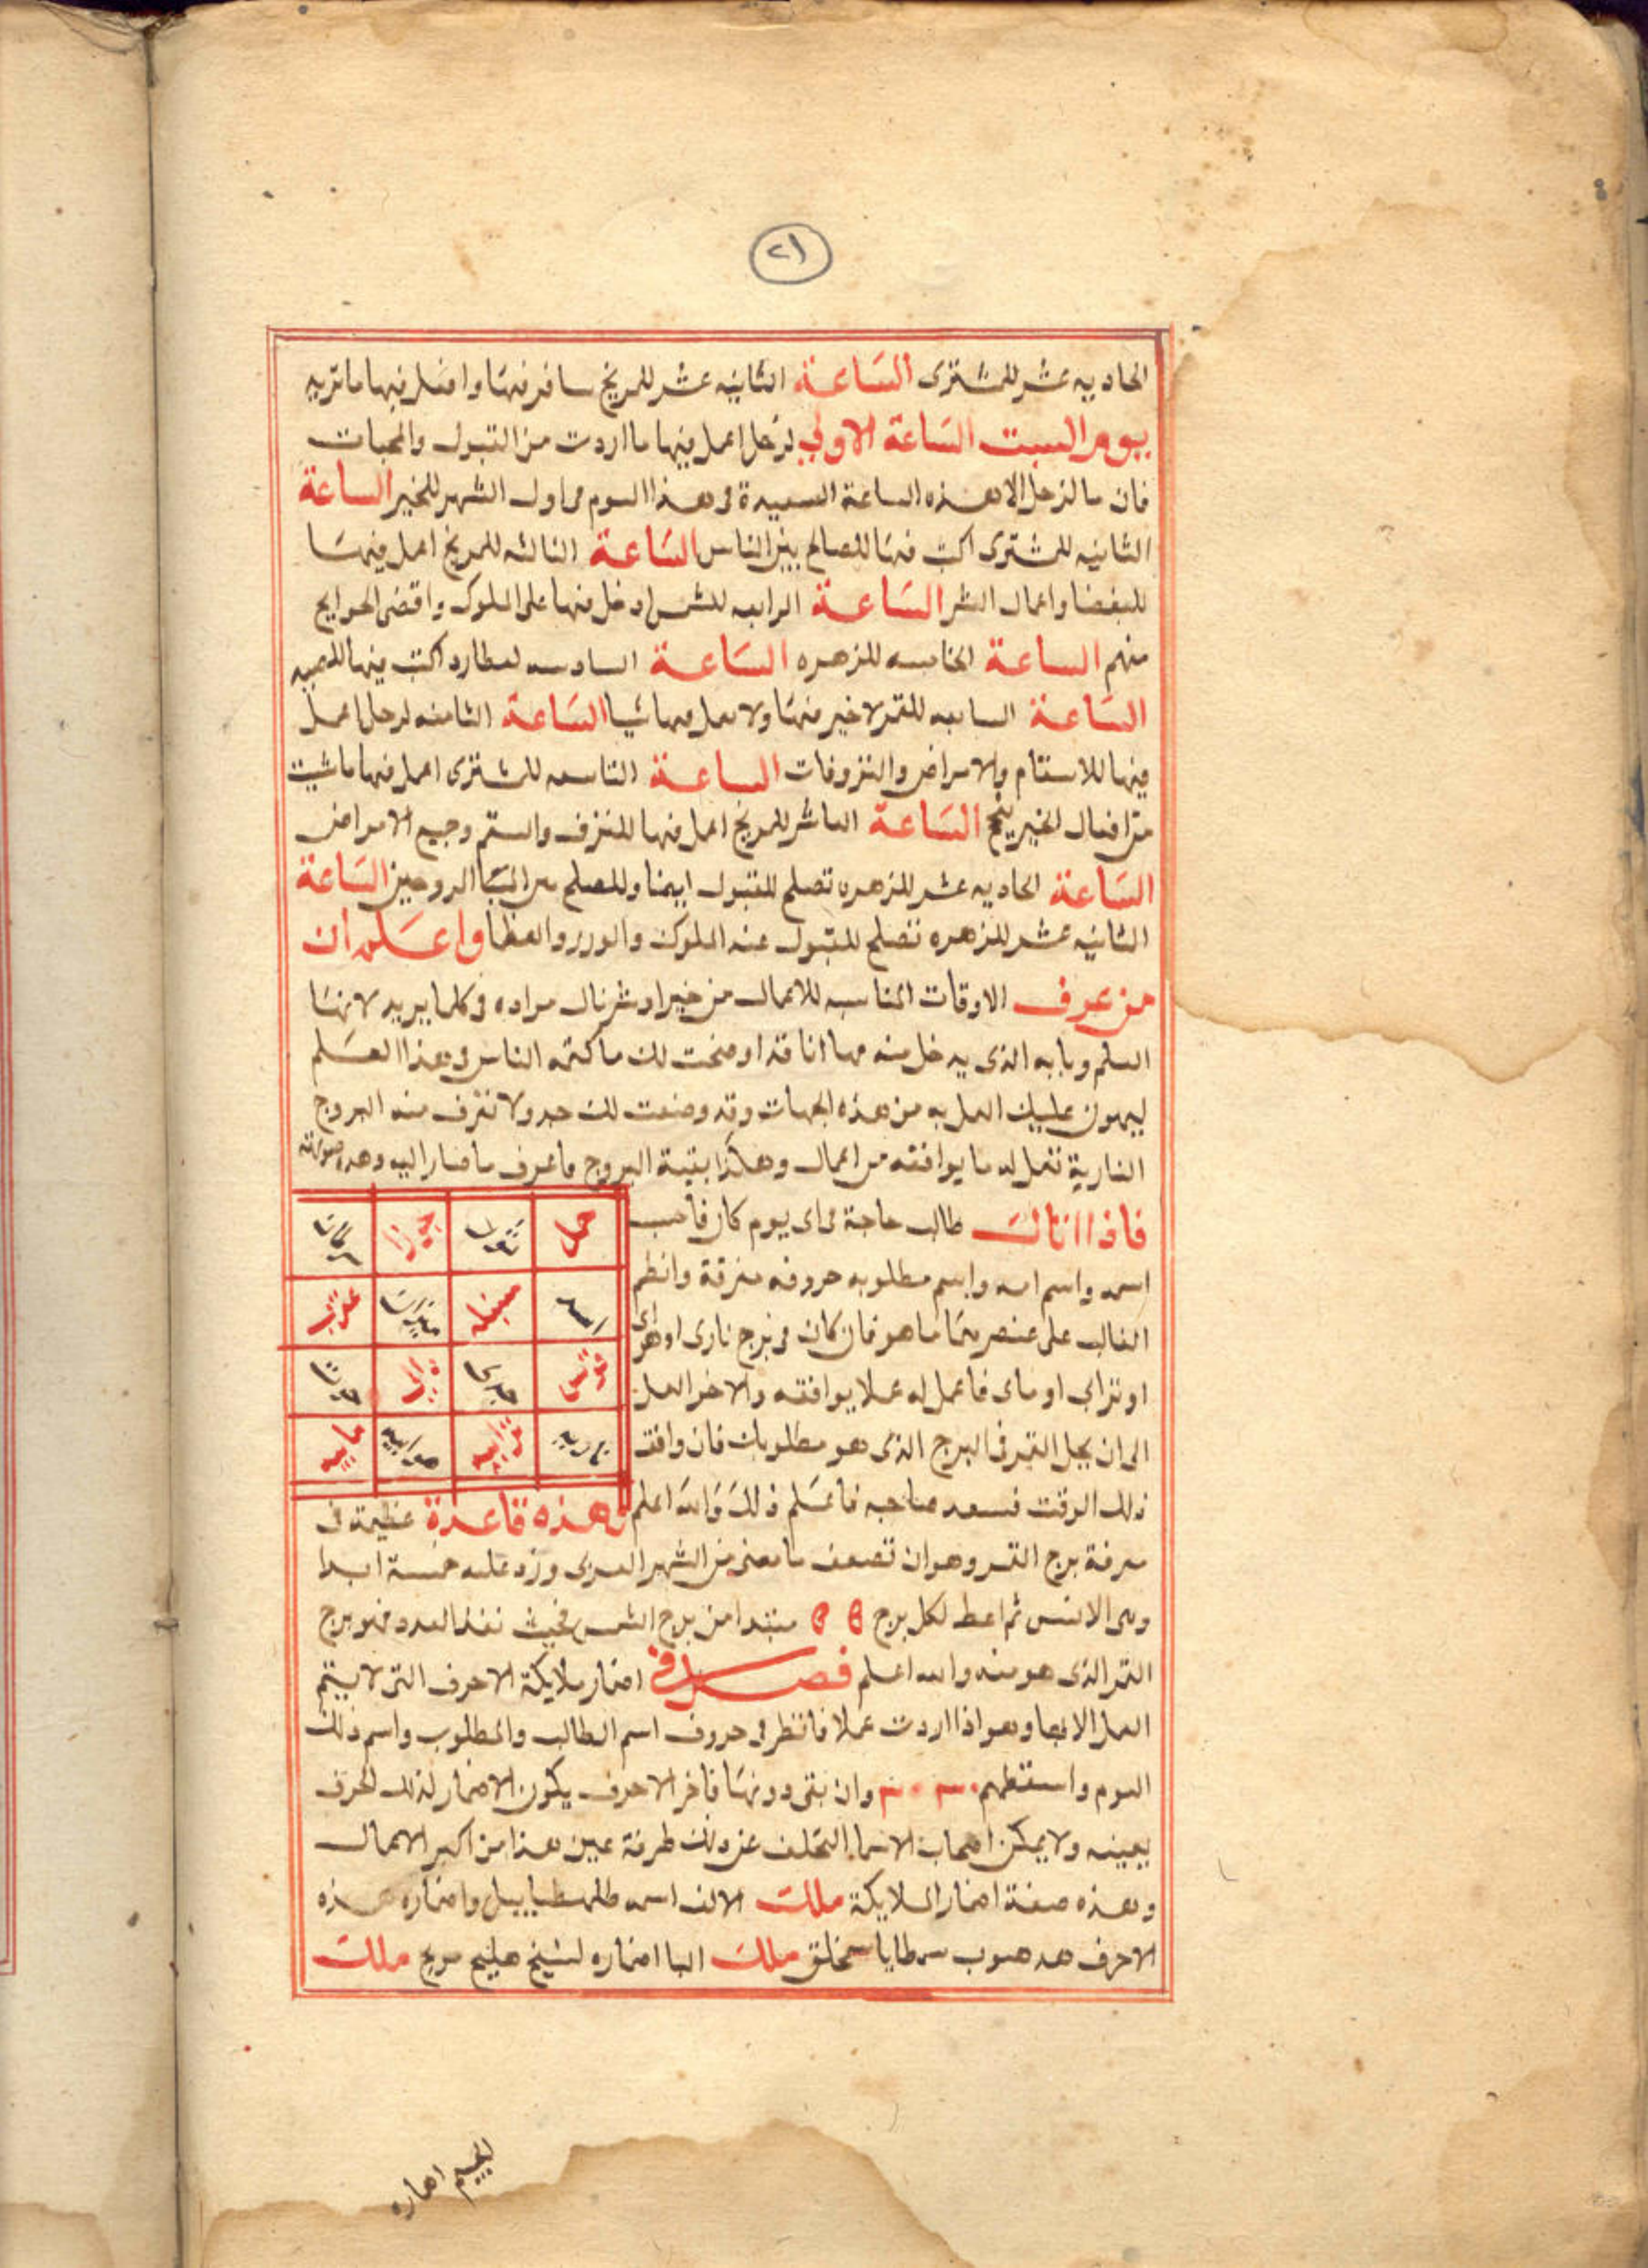 ٢١
الحاديه عشر للمشترى الساعة الثانيه عشر للمريخ سافر فيها وافعل فيها ما تريد
يوم السبت الساعة الاولي لزحل اعمل فيها ما اردت من القبول والمحبات
فان ما لزحل الا هذه الساعة السعيدة فى هذا اليوم فى اول الشهر للخير الساعة
الثانيه للمشترى اكتب فيها للصالح بين الناس الساعة الثالثه للمريخ اعمل فيها
للبغضا واعمال الشر الساعة الرابعه للشمس ادخل فيها على الملوك واقضى الحوايج
منهم الساعة الخامسه للزهره الساعة السادسه لعطارد اكتب فيها للمحبه
الساعة السابعه للقمر لا خير فيها ولا تعمل فيها شيا الساعة الثامنه لزحل اعمل
فيها للاسقام والامراض والنزوفات الساعة التاسعه للمشترى اعمل فيها ما شيت
من افعال الخير ينجح الساعة العاشر للمريخ اعمل فيها للنزف والسقم وجيع الامراض
الساعة الحاديه عشر للزهره تصلح للقبول ايضا وللصلح الساعة
الثانيه عشر للزهره تصلح للقبول عند الملوك والوزر والعظما واعلم ان
من عرف الاوقات المناسبه للاعمال من خير او شر نال مراده فى كلما يريد لانها
السلم وبابه الذى يدخل منه فها انا قد اوضحت لك ما كتمه الناس فى هذا العلم
ليهون عليك العمل به من هذه الجهات وقد وضعت لك جدولا تعرف منه البروج
النارية تعمل له ما يوافقه من اعمال وهكذا بقية البروج فاعرف ما صار اليه وهذه صورته
فاذا اتاك طالب حاجة فى اى يوم كان فاحسب
اسمه واسم امه واسم مطلوبه حروفه مفرقة وانظر
الغالب على عنصريهما ما هو فان كان فى برج نارى او هواى
او ترابى او ماى فاعمل له عملا يوافقه والاخر العمل
الى ان يحل القمر فى البرج الذى هو مطلوبك فان وافق
ذلك الوقت فسعد صاحبه فاعلم ذلك والله اعلم
حمل ثور جوزا سرطان
اسد سنبله ميزان عقرب
قوس جدى دلو حوت
ناريه ترابيه هوايه ماييه
وهذه قاعدة عظيمة فى
معرفة برج القمر وهو ان تضعف ما مضى من الشهر العربى وزد عليه خمسة ابدا
وهى الاس ثم اعط لكل برج ٥ ٥ مبتدا من برج الشمس فحيث نفذ العدد فهو برج
القمر الذى هو منه والله اعلم فصل فى اضمار ملايكة الاحرف التى لا يتم
العمل الا بها وهو اذا اردت عملا فانظر فى حروف اسم الطالب والمطلوب واسم ذلك
اليوم واسقطهم وان بقى دونها فاخر الاحرف يكون الاضمار لذلك الحرف
بعينه ولا يمكن اصحاب الاسما التخلف عن ذلك طرفة عين هذا من اكبر الاعمال
وهذه صفة اضمار الملايكة ملك الالف اسمه طهطياييل واضماره هذه
الاحرف ملك البا اضماره ملك
الجيم اضماره